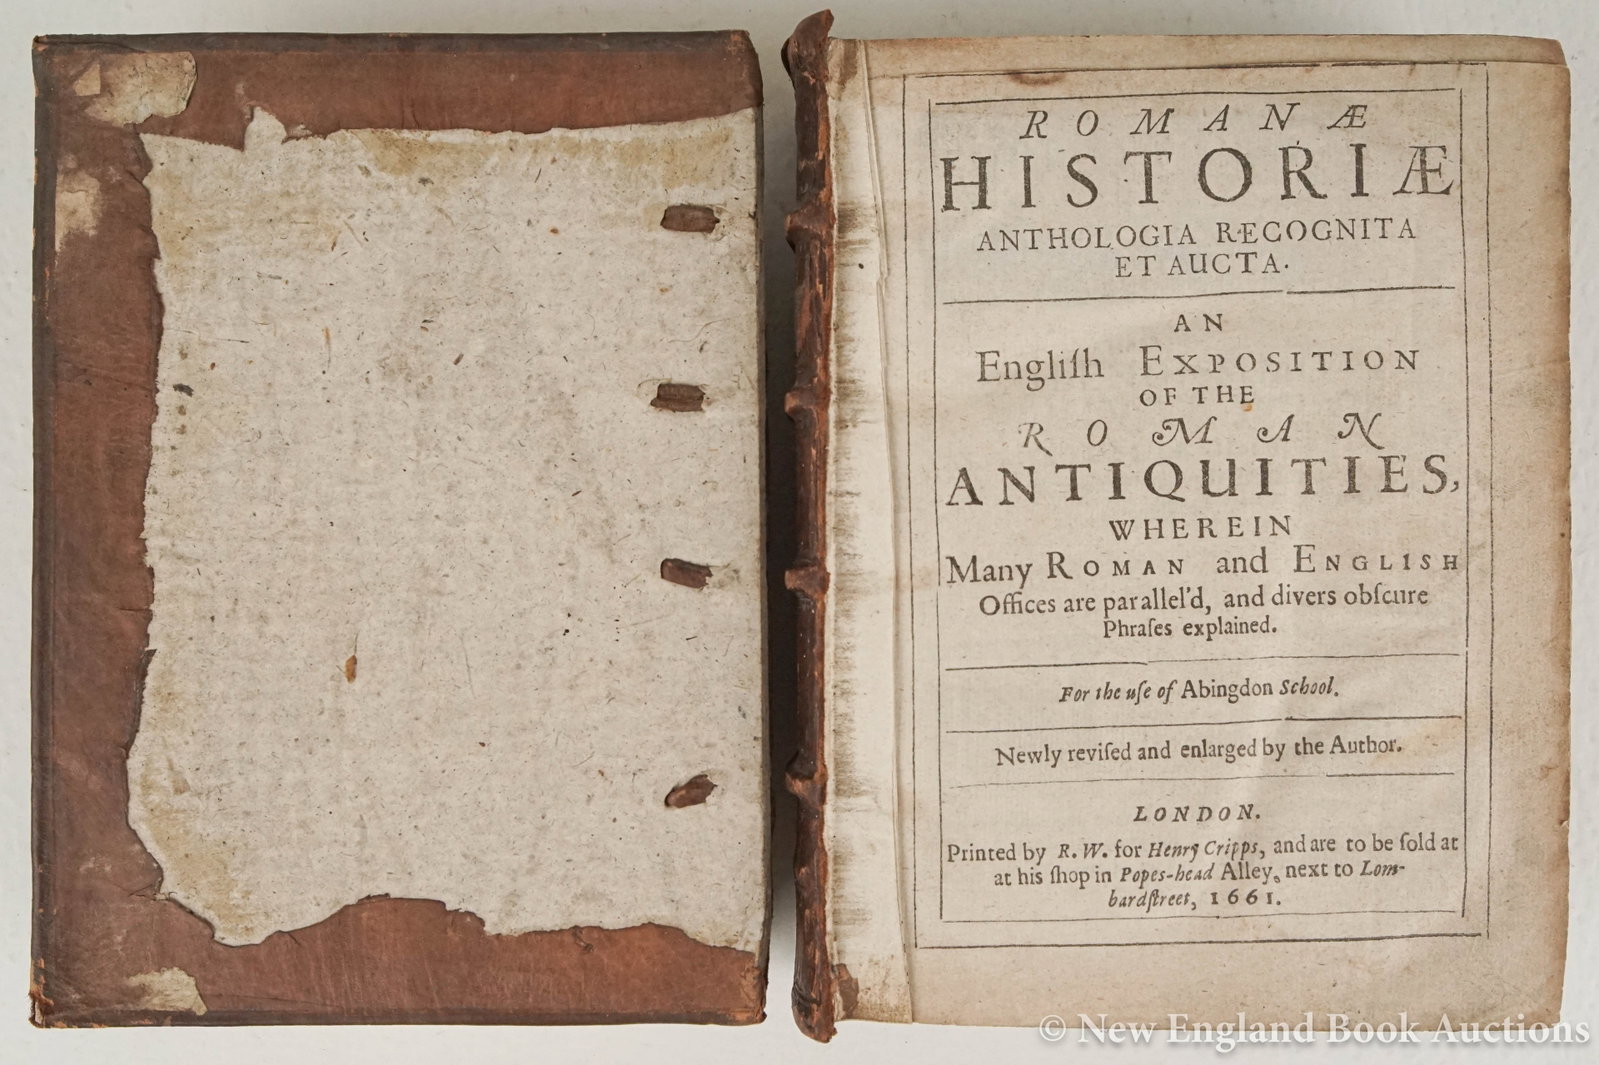 ROMANÆ
HISTORIÆ
ANTHOLOGIA RECOGNITA
ET AUCTA.
AN
Engliſh EXPOSITION
OF THE
ROMAN
ANTIQUITIES,
WHEREIN
Many ROMAN and ENGLISH
Offices are parallel'd, and divers obſcure
Phraſes explained.
For the uſe of Abingdon School.
Newly reviſed and enlarged by the Author.
LONDON.
Printed by R. W. for Henry Cripps, and are to be ſold at
at his ſhop in Popes-head Alley, next to Lom-
bardſtreet, 1661.
© New England Book Auctions